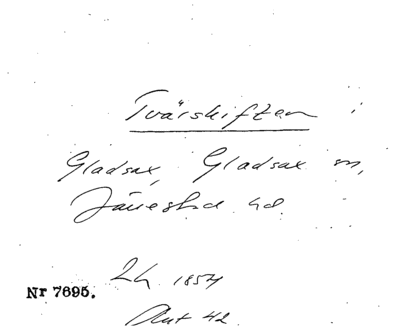 Tvärskiften i
Gladsax, Gladsax sn,
Järrestad hd.
Lh 1854
Nr 7695.
Akt 42